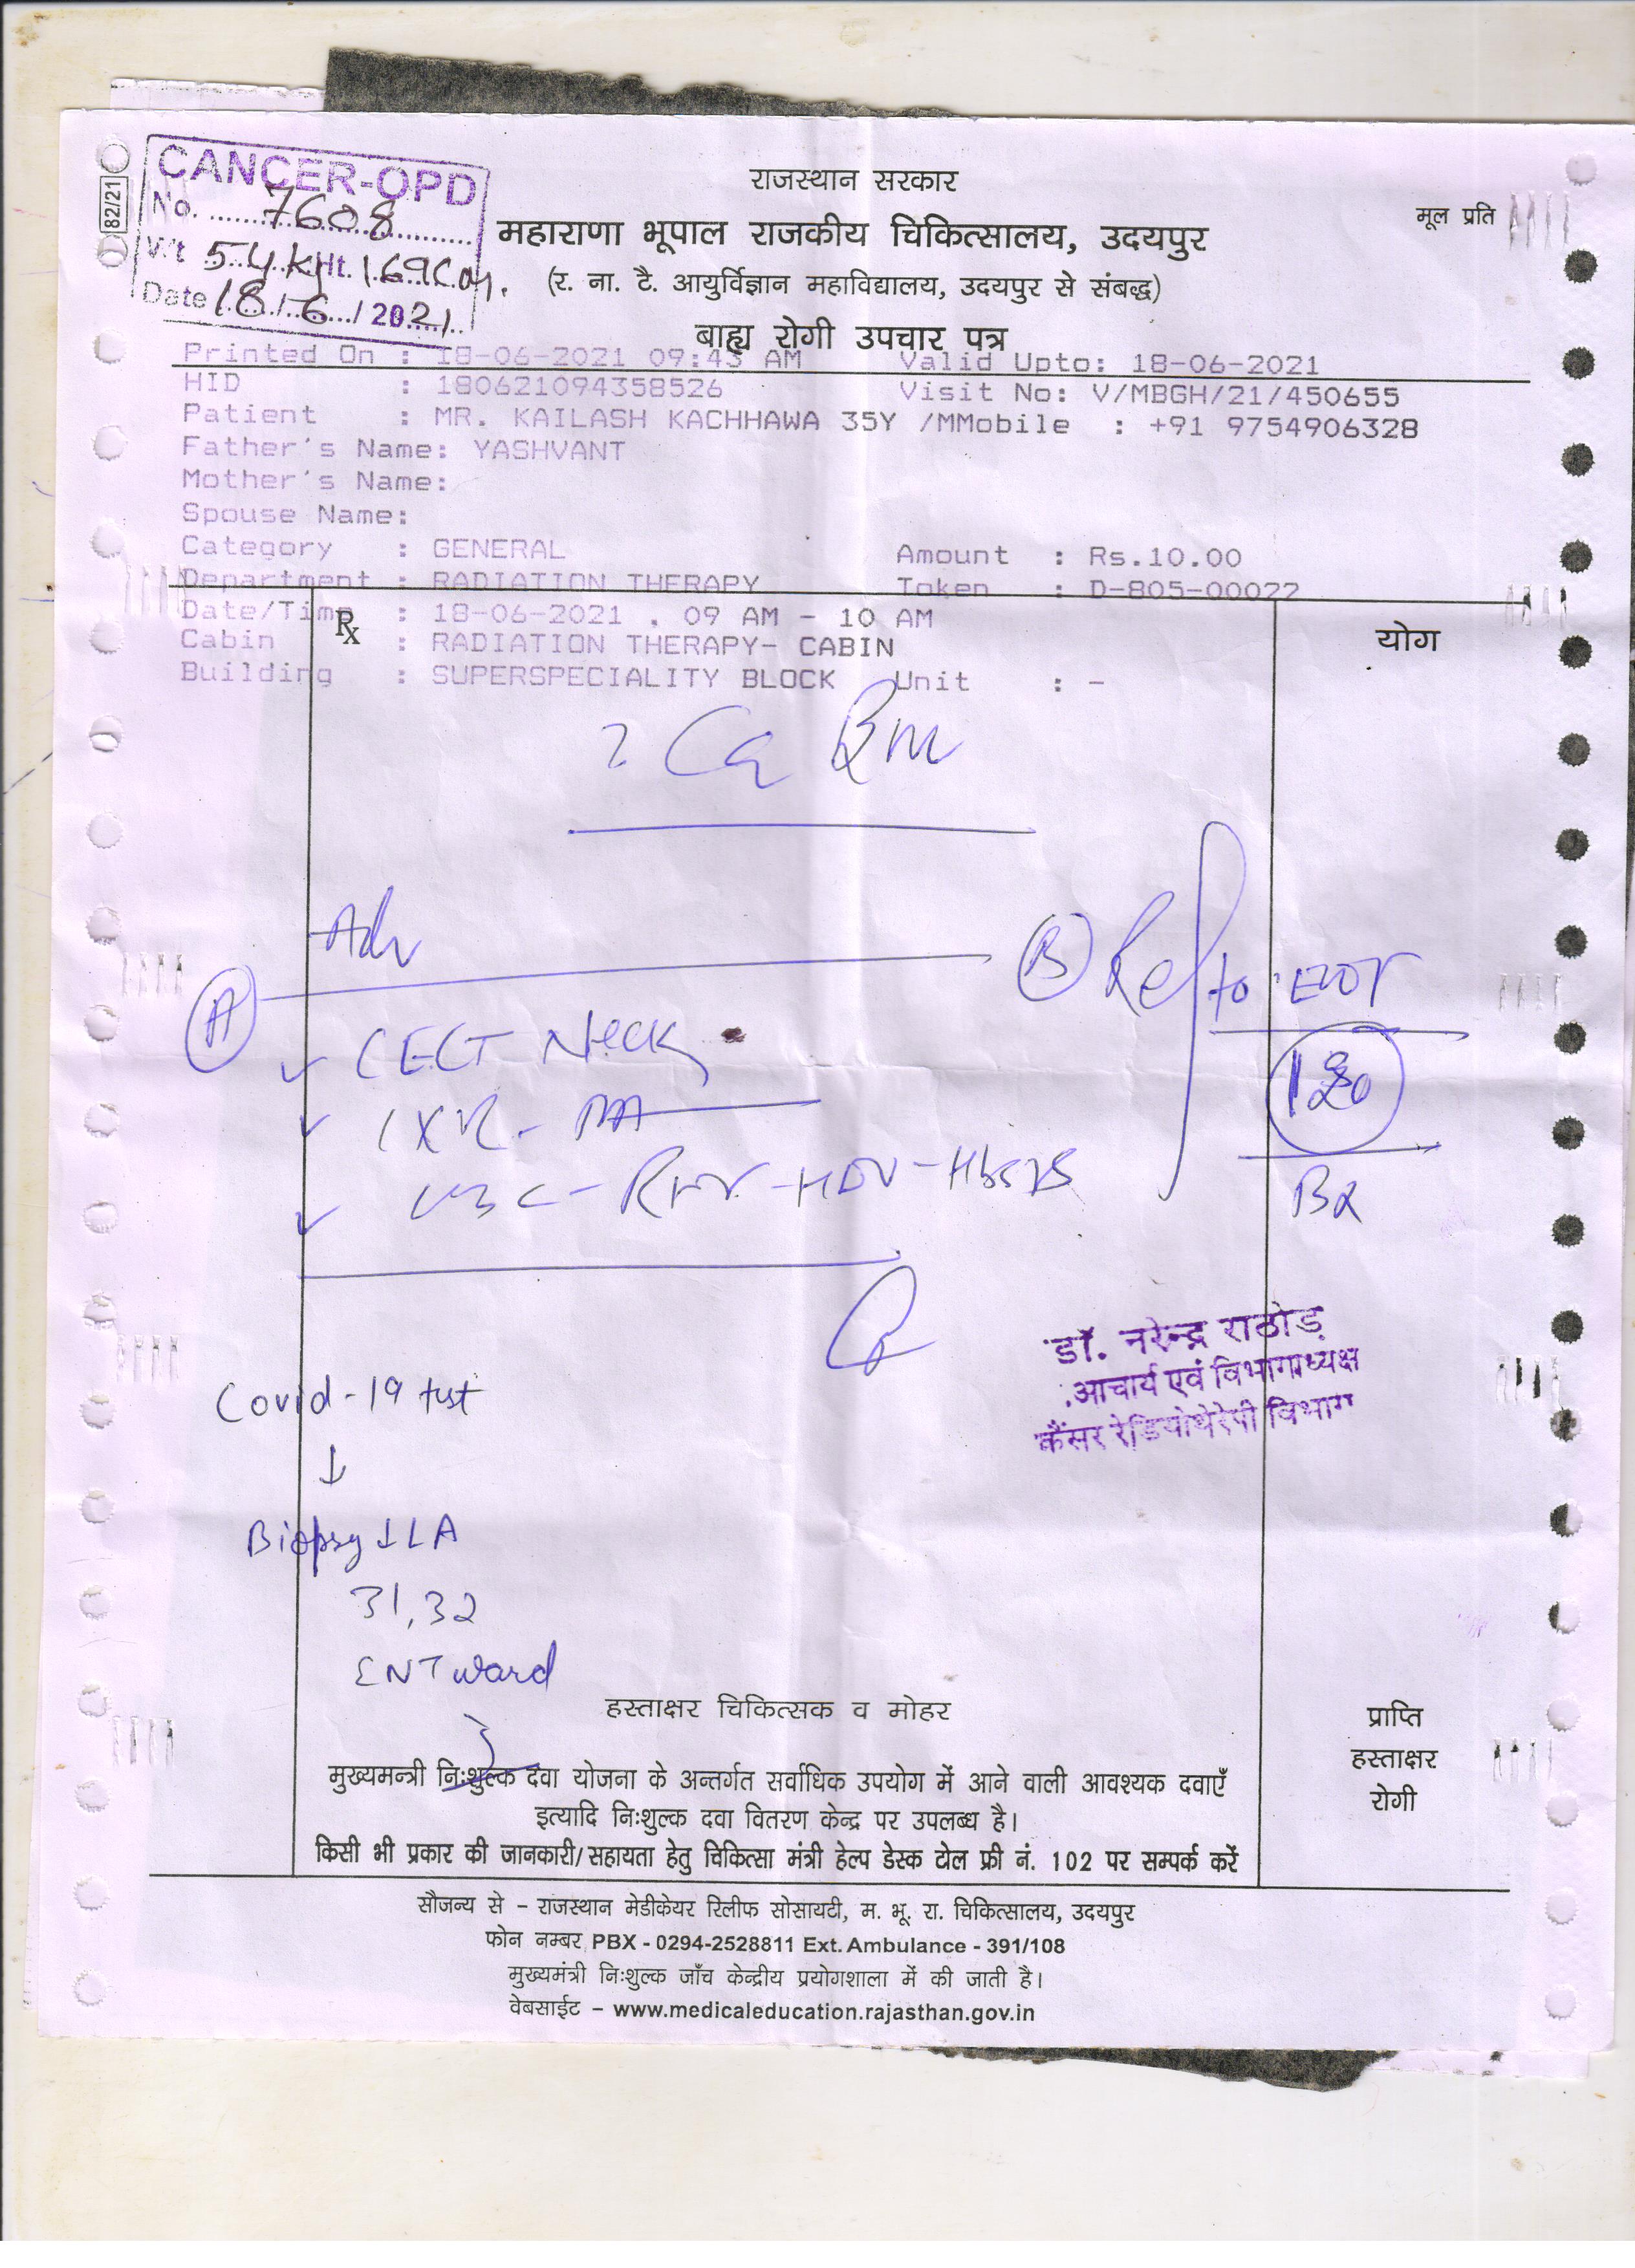 82/21
CANCER-OPD
No. 7608
Wt 54 kg Ht. 169 cm.
Date 18/6/2021
राजस्थान सरकार
मूल प्रति
महाराणा भूपाल राजकीय चिकित्सालय, उदयपुर
(र. ना. टै. आयुर्विज्ञान महाविद्यालय, उदयपुर से संबद्ध)
बाह्य रोगी उपचार पत्र
Printed On : 18-06-2021 09:43 AM Valid Upto: 18-06-2021
HID : 180621094358526 Visit No: V/MBGH/21/450655
Patient : MR. KAILASH KACHHAWA 35Y /MMobile : +91 9754906328
Father's Name: YASHVANT
Mother's Name:
Spouse Name:
Category : GENERAL Amount : Rs.10.00
Department : RADIATION THERAPY Token : D-805-00022
Date/Time : 18-06-2021 , 09 AM - 10 AM
Cabin : RADIATION THERAPY- CABIN
Building : SUPERSPECIALITY BLOCK Unit : -
Rx
योग
? Ca BM
Adv
(A)
CECT Neck
CXR - PA
(B) Ref to ENT
Bx
डॉ. नरेन्द्र राठोड़
आचार्य एवं विभागाध्यक्ष
कैंसर रेडियोथेरेपी विभाग
Covid-19 test
↓
Biopsy ↓ LA
31, 32
ENT ward
हस्ताक्षर चिकित्सक व मोहर
प्राप्ति
हस्ताक्षर
रोगी
मुख्यमन्त्री निःशुल्क दवा योजना के अन्तर्गत सर्वाधिक उपयोग में आने वाली आवश्यक दवाएँ
इत्यादि निःशुल्क दवा वितरण केन्द्र पर उपलब्ध है।
किसी भी प्रकार की जानकारी/सहायता हेतु चिकित्सा मंत्री हेल्प डेस्क टोल फ्री नं. 102 पर सम्पर्क करें
सौजन्य से - राजस्थान मेडीकेयर रिलीफ सोसायटी, म. भू. रा. चिकित्सालय, उदयपुर
फोन नम्बर PBX - 0294-2528811 Ext. Ambulance - 391/108
मुख्यमंत्री निःशुल्क जाँच केन्द्रीय प्रयोगशाला में की जाती है।
वेबसाईट - www.medicaleducation.rajasthan.gov.in